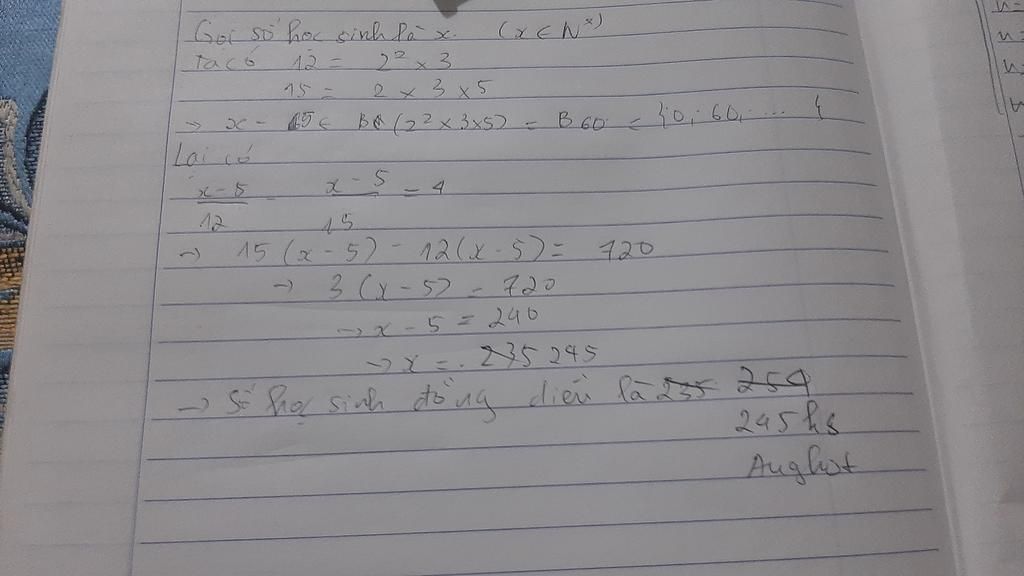 Gọi số học sinh là x. (x ∈ N*)
Ta có 12 = 2² × 3
15 = 2 × 3 × 5
→ x - 5 ∈ BC (2² × 3 × 5) = B 60 = {0; 60; ... {
Lại có
x-5/12 - x-5/15 = 4
→ 15 (x - 5) - 12 (x - 5) = 720
→ 3 (x - 5) = 720
→ x - 5 = 240
→ x = 235 245
→ Số học sinh đồng diễn là 235 254
245 hs